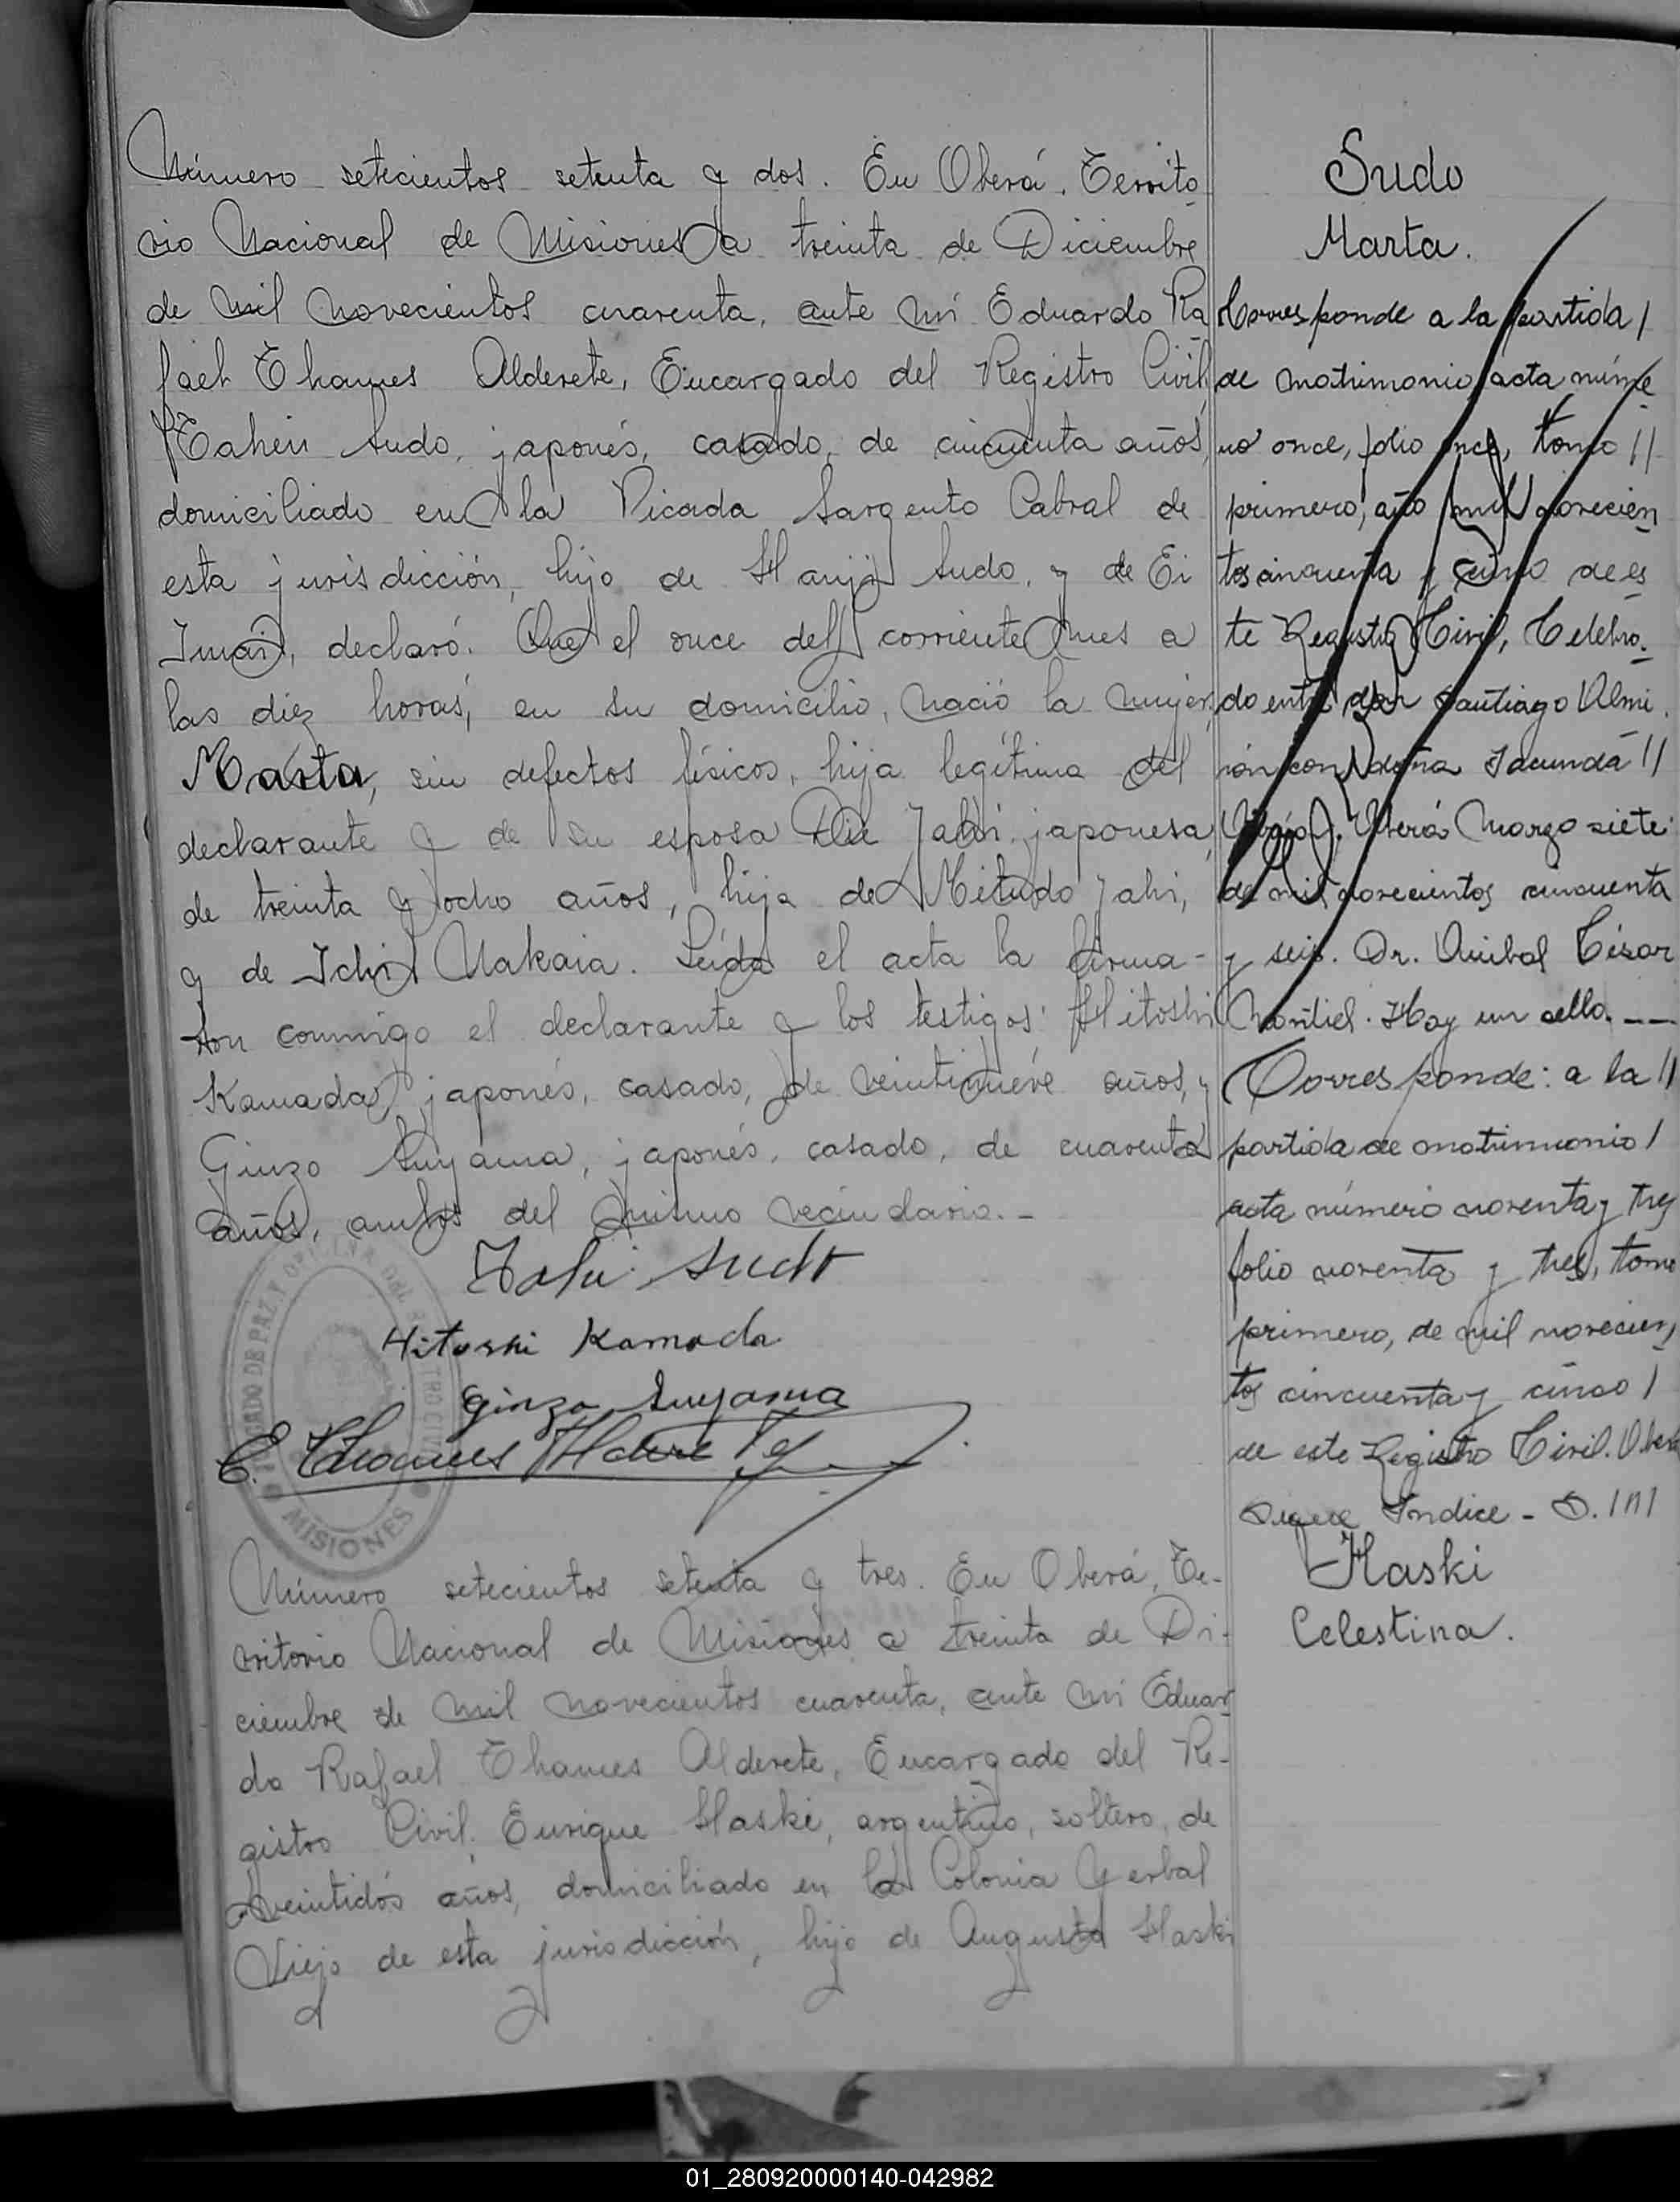 Número setecientos setenta y dos. En Oberá, Territo
rio Nacional de Misiones a treinta de Diciembre
de mil novecientos cuarenta, ante mí Eduardo Ra
fael Thames Alderete, Encargado del Registro Civil,
Tahei Sudo, japonés, casado, de cincuenta años,
domiciliado en la Picada Sargento Cabral de
esta jurisdicción, hijo de Hanji Sudo, y de Ei
Imai, declaró: Que el once del corriente mes a
las diez horas, en su domicilio, nació la mujer
Marta, sin defectos físicos, hija legítima del
declarante y de su esposa Die Jahi japonesa,
de treinta y ocho años, hija de Jahi,
y de Ichi Nakaia. Leída el acta la firma-
ron conmigo el declarante y los testigos: Hitoshi
Kamada, japonés, casado, de veintinueve años, y
Ginzo Suyama, japonés, casado, de cuarenta
años, ambos del mismo vecindario.-
Sudo
Hitoshi Kamada
Ginzo Suyama
E. Thames Alderete
MISIONES
Número setecientos setenta y tres. En Oberá, Te-
rritorio Nacional de Misiones a treinta de Di-
ciembre de mil novecientos cuarenta, ante mí Eduar
do Rafael Thames Alderete, Encargado del Re-
gistro Civil, Enrique Haski, argentino, soltero, de
veintidós años, domiciliado en la Colonia Yerbal
Viejo de esta jurisdicción, hijo de Augusto Haski
Sudo
Marta.
Corresponde a la partida /
de matrimonio, acta núme
ro once, folio once, tomo //
primero, año mil novecien
tos cincuenta y cinco de es
te Registro Civil, Celebra-
do entre don Santiago Almi
rón con doña Facunda //
Oberá Marzo siete
de mil novecientos cincuenta
y seis. Dr. Anibal César
Montiel. Hay un sello. ---
Corresponde: a la //
partida de matrimonio /
acta número noventa y tres
folio noventa y tres, tomo
primero, de mil novecien
tos cincuenta y cinco /
de este Registro Civil. Oberá
Sigue Indice -
Haski
Celestina.
01_280920000140-042982